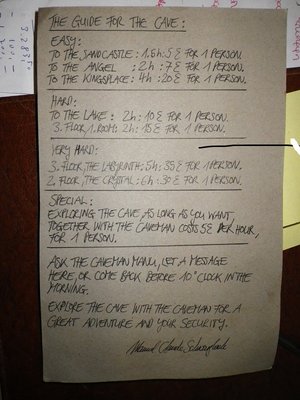 THE GUIDE FOR THE CAVE:
EASY:
TO THE SANDCASTLE: 1.5h: 5€ FOR 1 PERSON.
TO THE ANGEL : 2h : 7€ FOR 1 PERSON.
TO THE KINGSPLACE: 4h : 20€ FOR 1 PERSON.
HARD:
TO THE LAKE: 2h : 10€ FOR 1 PERSON.
3. FLOOR, 1. ROOM: 2h : 15€ FOR 1 PERSON.
VERY HARD:
3. FLOOR, THE LABYRINTH: 5h: 35€ FOR 1 PERSON.
2. FLOOR, THE CRYSTAL: 6h : 30€ FOR 1 PERSON.
SPECIAL:
EXPLORING THE CAVE, AS LONG AS YOU WANT,
TOGETHER WITH THE CAVEMAN COSTS 5€ PER HOUR,
FOR 1 PERSON.
ASK THE CAVEMAN MANU, LET A MESSAGE
HERE, OR COME BACK BEFORE 10°CLOCK IN THE
MORNING.
EXPLORE THE CAVE WITH THE CAVEMAN FOR A
GREAT ADVENTURE AND YOUR SECURITY.